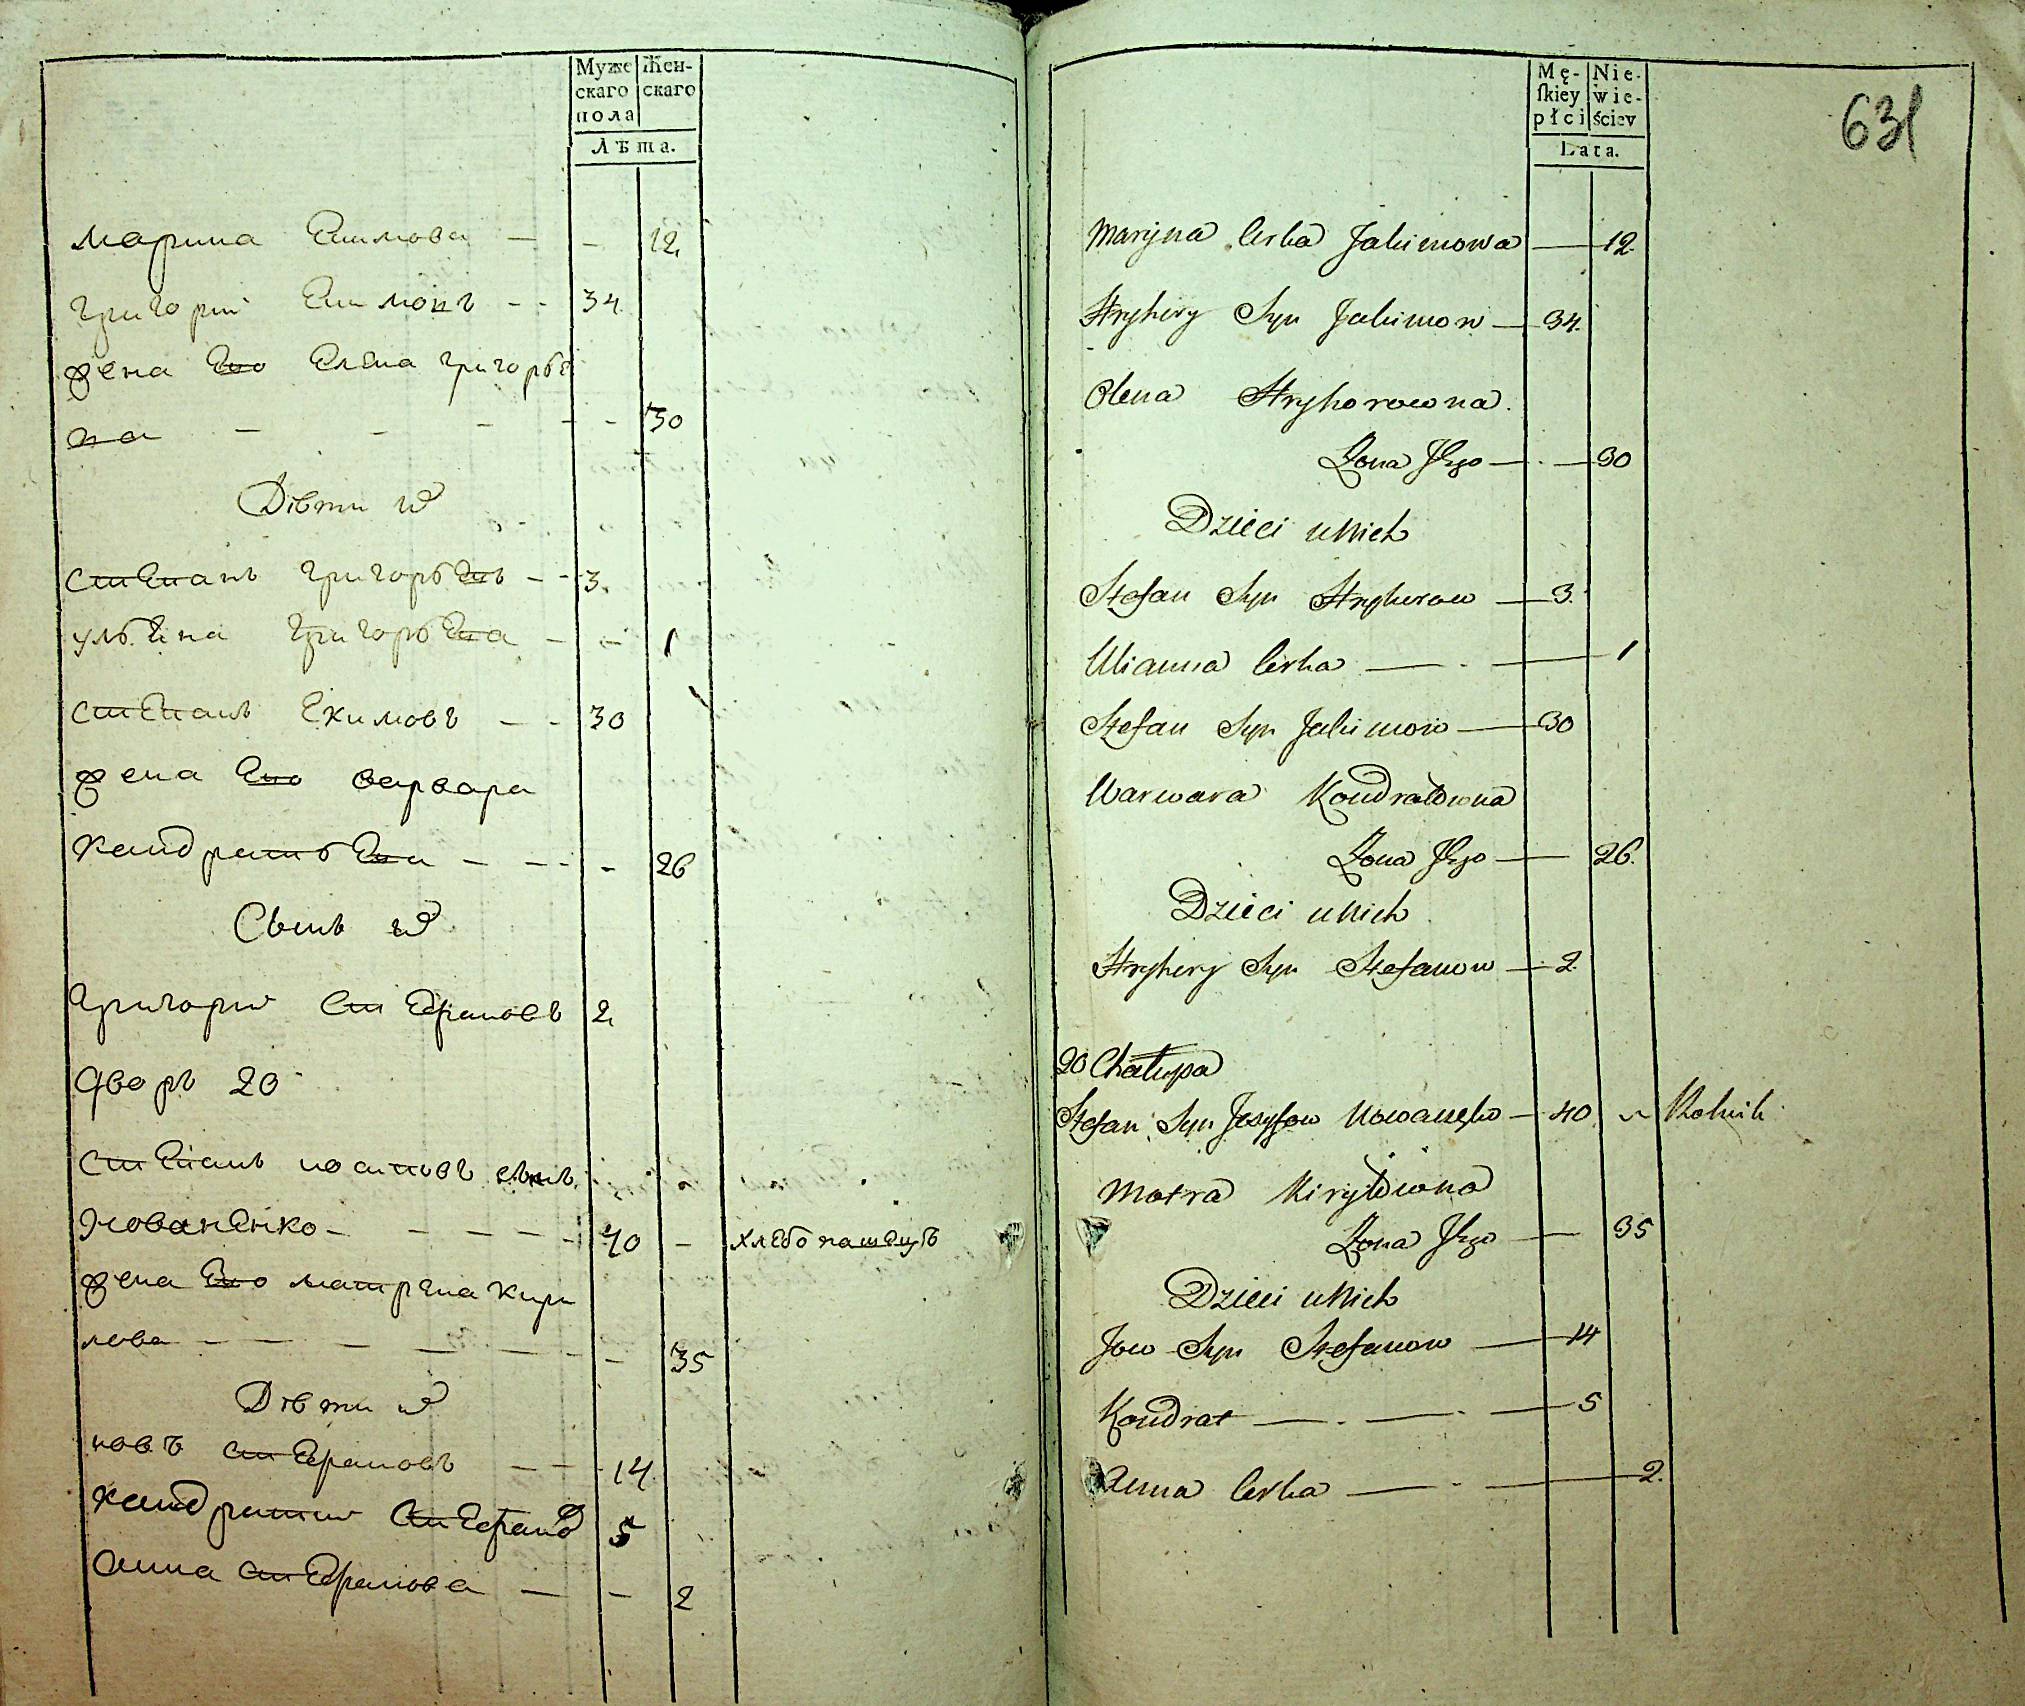 Муже Жен-
скаго скаго
пола
Лѣта.
марина Екимова — - 12
григорий Екимовъ - - 34
жена Его Елена григорьЕ
на - - - - - 30
Дѣти ихъ
стЕпанъ григорьЕвъ - - 3.
ульЕна григорьЕва - - 1
стЕпанъ Екимовъ - - 30
жена Его варвара
кандратьЕва - - - - 26
Сынъ ихъ
григорий стЕфановъ 2
Дворъ 20
стЕпанъ иосиповъ сынъ
нованЕнко - - - - - 40 - хлЕбопашЕцъ
жена Его матрена кири
лова - - - - - - - 35
Дѣти ихъ
иовъ стЕфановъ - - 14
кандратий стЕфановъ 5
анна стЕфанова - - 2
Mę- Nie-
ſkiey wie-
płci ściey
Lata.
631
Maryna Corka Jakimowa — 12
Hryhory Syn Jakimow — 34.
Olena Hryhorowna.
Żona Jego — . — 30
Dzieci u Nich
Stefan Syn Hryhorow — 3.
Ulianna Corka — . — 1
Stefan Syn Jakimow — 30
Warwara Kondratowna
Żona Jego — 26.
Dzieci u Nich
Hryhory Syn Stefanow — 2.
20 Chałupa
Stefan Syn Jozyfow Nowanęko — 40 Rolnik
Motra Kiryłowna
Żona Jego — 35
Dzieci u Nich
Jow Syn Stefanow — 14
Kondrat — . — . — 5
Anna Corka — . — 2.